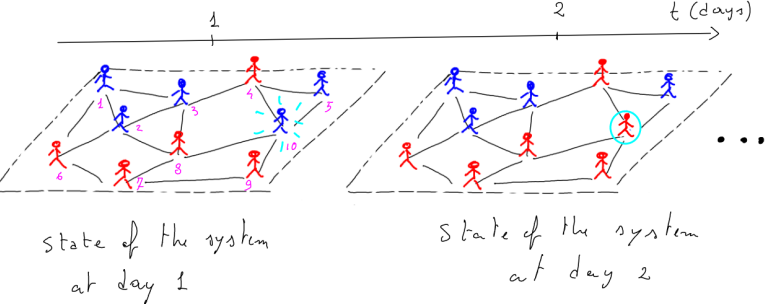 1 2 t (days)
1 2 3 4 5
6 7 8 9 10
state of the system
at day 1
State of the system
at day 2
...